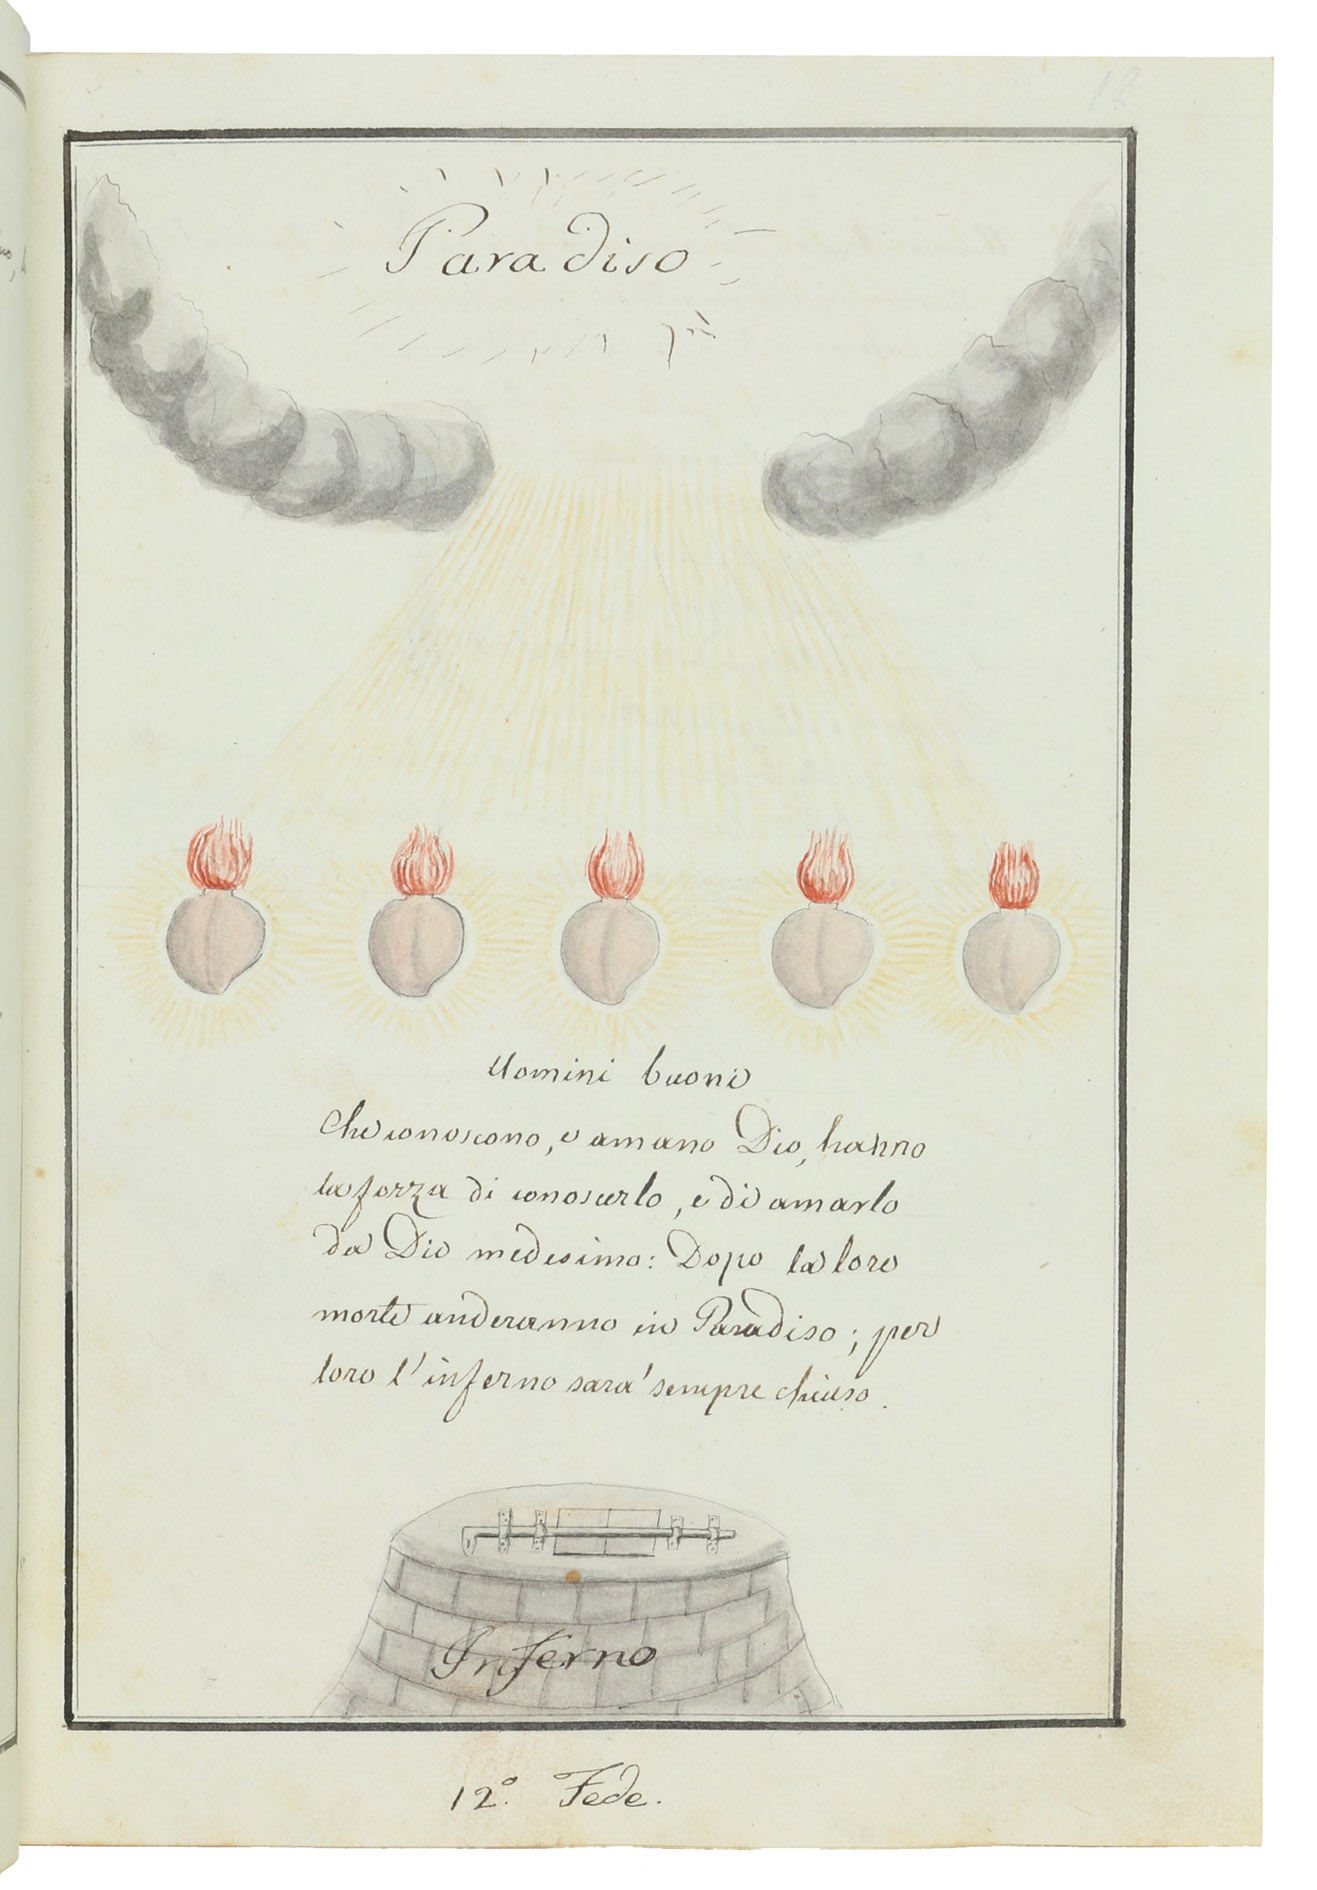 Paradiso
Uomini buoni
Che conoscono, e amano Dio, hanno
la forza di conoscerlo, e di amarlo
da Dio medesimo: Dopo la loro
morte anderanno in Paradiso; per
loro l'inferno sara' sempre chiuso.
Inferno
12.º Fede.